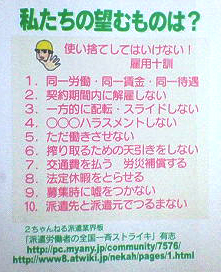 私たちの望むものは？
使い捨てしてはいけない！
雇用十訓
1. 同一労働・同一賃金・同一待遇
2. 契約期間内に解雇しない
3. 一方的に配転・スライドしない
4. 〇〇〇ハラスメントしない
5. ただ働きさせない
6. 搾り取るための天引きをしない
7. 交通費を払う 労災補償する
8. 法定休暇をとらせる
9. 募集時に嘘をつかない
10. 派遣先と派遣元でつるまない
2ちゃんねる派遣業界板
「派遣労働者の全国一斉ストライキ」有志
http://pc.myany.jp/community/7576/
http://www8.atwiki.jp/nekah/pages/1.html